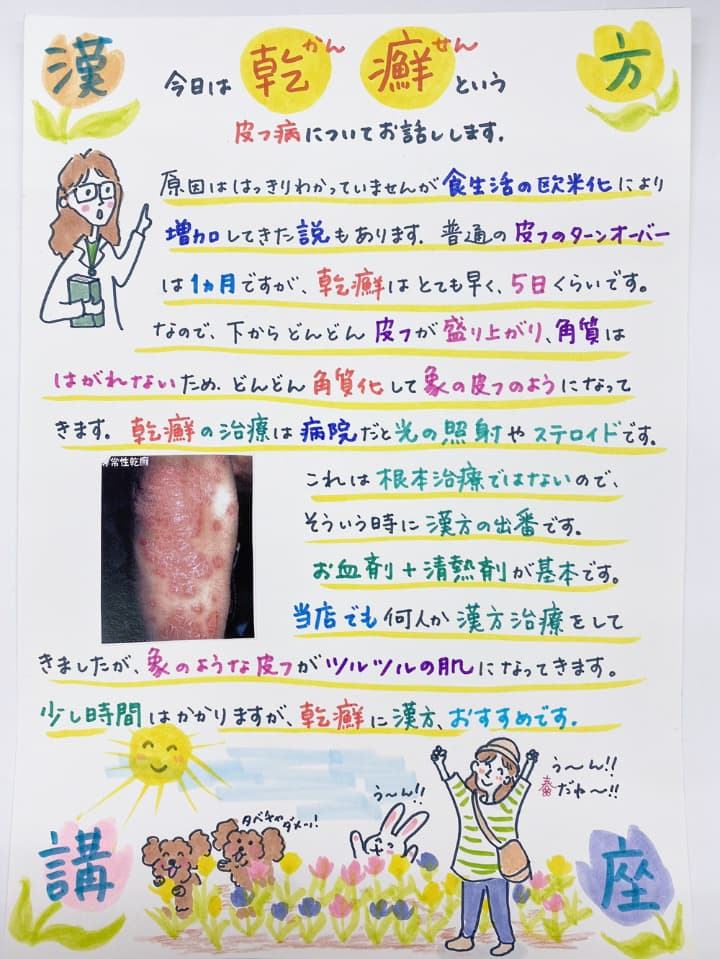 漢方
今日は乾癬という
かん せん
皮フ病についてお話しします.
原因ははっきりわかっていませんが食生活の欧米化により
増加してきた説もあります. 普通の皮フのターンオーバー
は1ヵ月ですが、乾癬はとても早く、5日くらいです。
なので、下からどんどん皮フが盛り上がり、角質は
はがれないため. どんどん角質化して象の皮フのようになって
きます. 乾癬の治療は病院だと光の照射やステロイドです.
尋常性乾癬
これは根本治療ではないので、
そういう時に漢方の出番です.
お血剤+清熱剤が基本です。
当店でも何人か漢方治療をして
きましたが、象のような皮フがツルツルの肌になってきます。
少し時間はかかりますが、乾癬に漢方、おすすめです.
う〜ん!!
春だね〜!!
う〜ん!!
タベチャダメッ!
講座